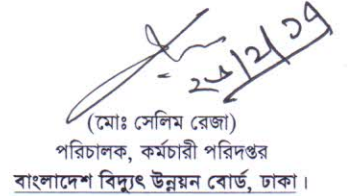 (মোঃ সেলিম রেজা)
পরিচালক, কর্মচারী পরিদপ্তর
বাংলাদেশ বিদ্যুৎ উন্নয়ন বোর্ড, ঢাকা।